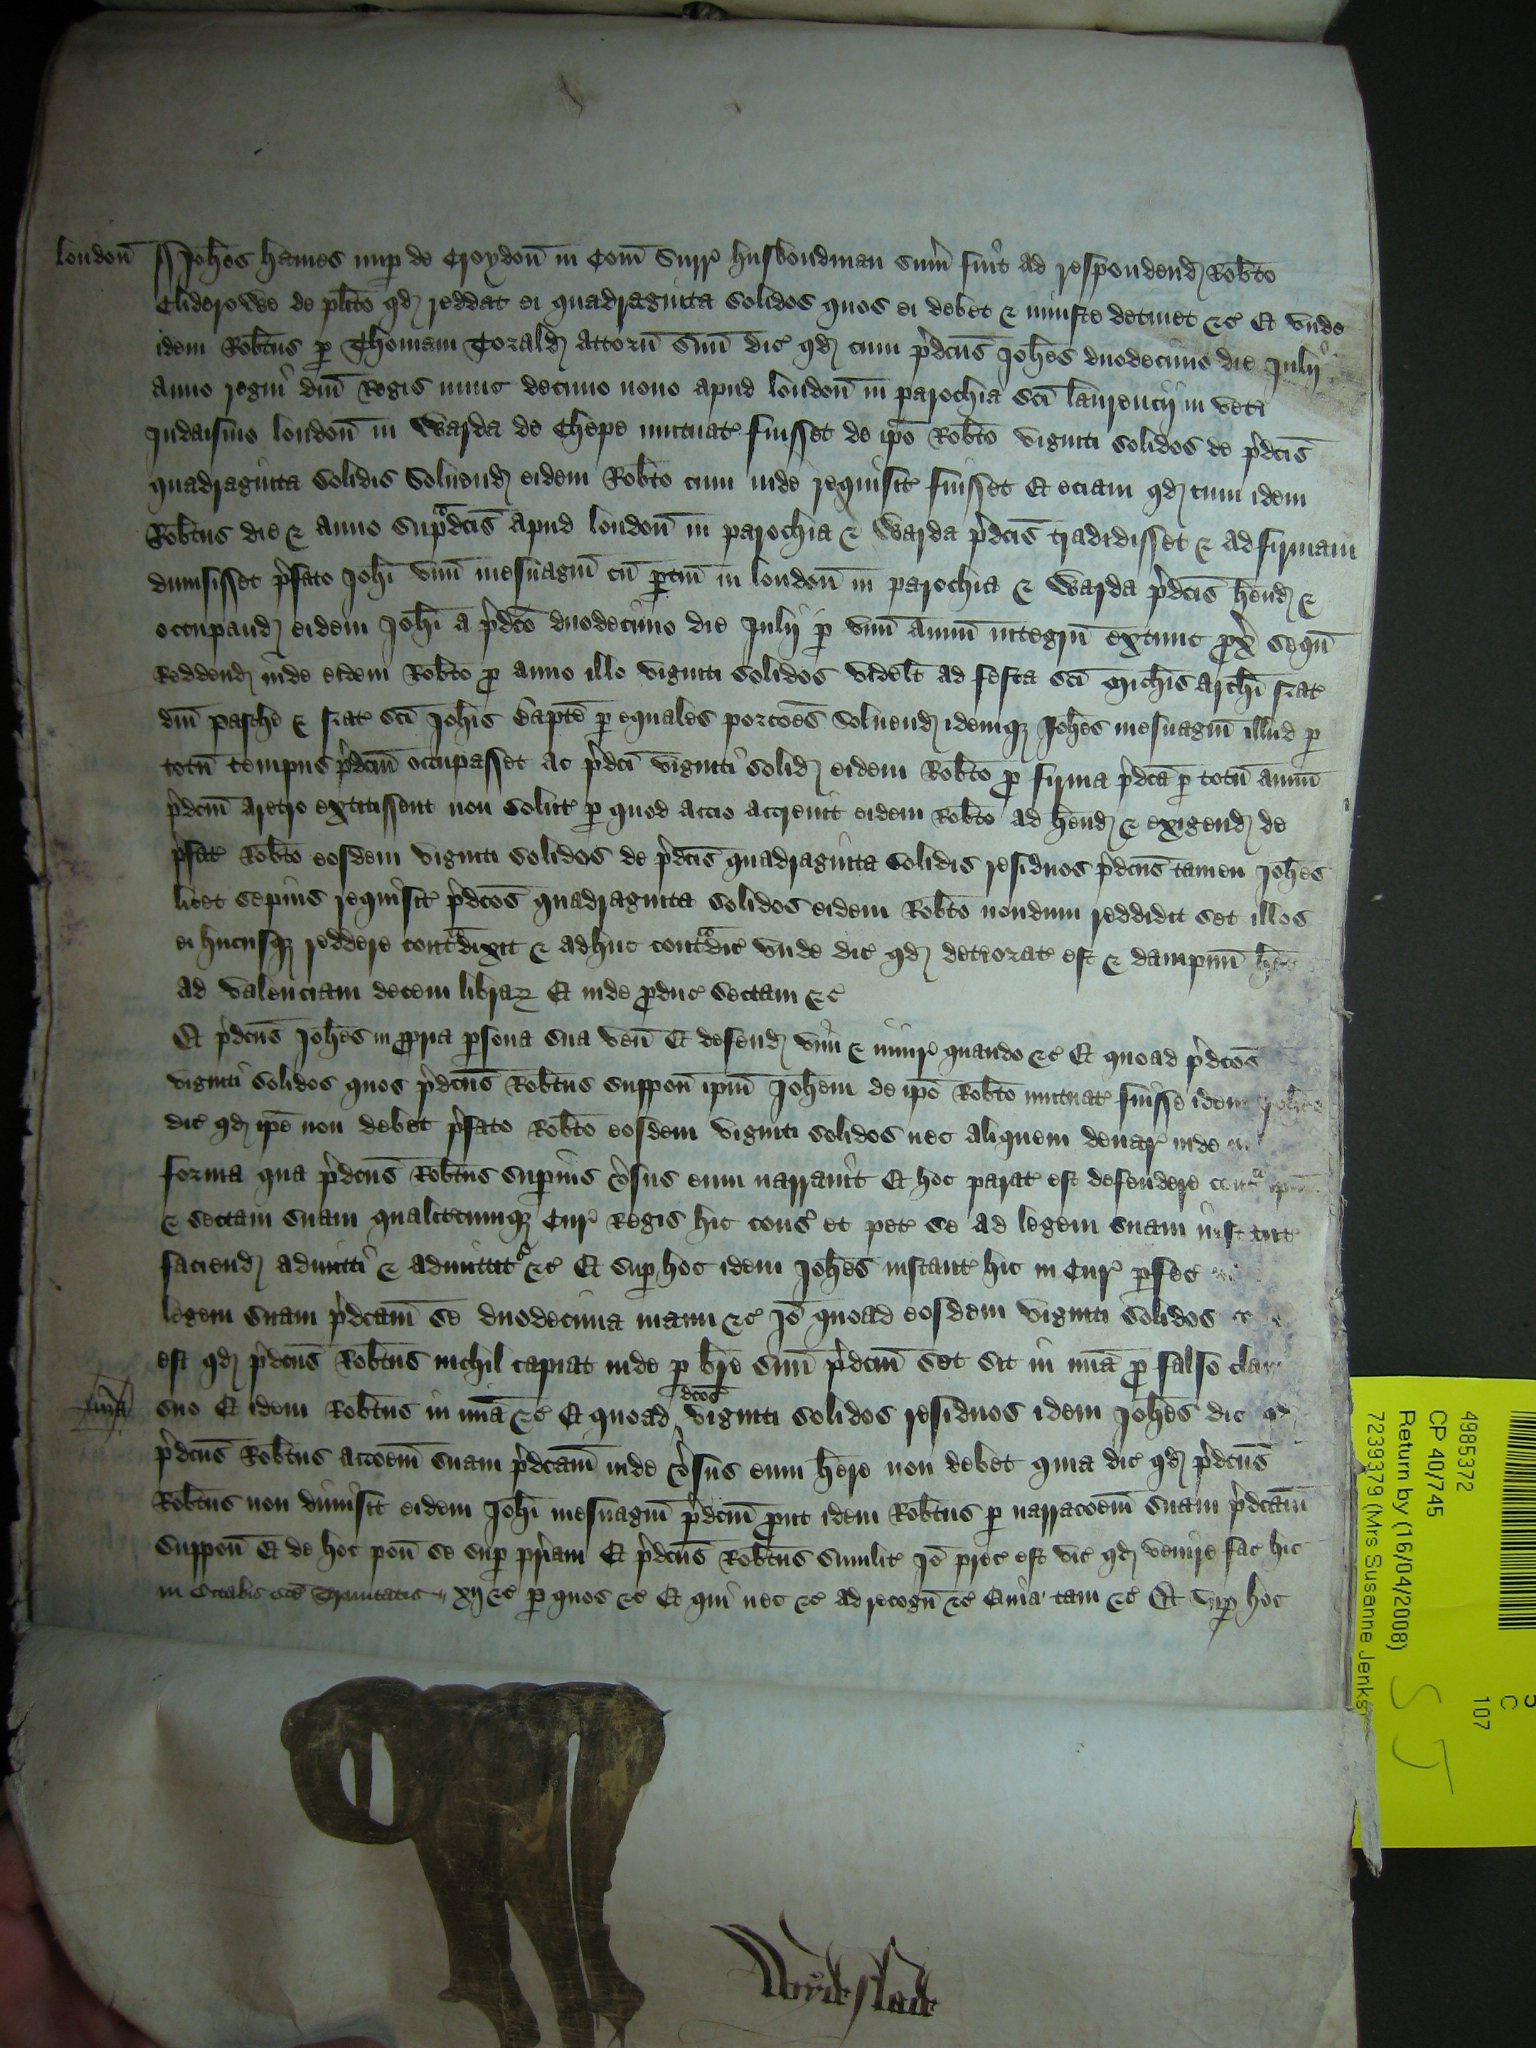 londoñ Joħes hames nup de Croydoñ in Com̄ Surr husbondman sum̄ fuit ad respondend Roƀto
Cliderowe de plito qd reddat ei quadraginta solidos quos ei debet & iniuste detinet &c Et vnde
idem Roƀtus p Thomam Torald Attorn̄ suū dic qd cum p̄dcūs Joħes duodecimo die Julij
anno regni dn̄i Regis nunc decimo nono apud londoñ in parochia scī laurencij in veti
Judaismo londoñ in Warda de Chepe mutuat fuisset de ipō Roƀto viginti solidos de p̄dcīs
quadraginta solidis soluend eidem Roƀto cum inde requisit fuisset Et eciam qd cum idem
Roƀtus die & anno sup̄dcīs apud londoñ in parochia & Warda p̄dcīs tradidisset & ad firmam
dimisisset p̄fato Joħi vnū mesuagiū cū ptin̄ in londoñ in parochia & Warda p̄dcīs hend &
occupand eidem Joħi a p̄dcō duodecimo die Julij p vnū annū integrū extunc px̄ sequn̄
Reddend inde eidem Roƀto p anno illo viginti solidos videlt ad festa scī Michis Archi Nat
dn̄i pasche & Nat scī Joħis Bapte p equales porcōes soluend idemq Joħes mesuagiū illud p
totū tempus p̄dcm̄ occupasset ac p̄dcī viginti solid eidem Roƀto p firma p̄dcā p totū annū
p̄dcm̄ aretro extitissent non solut p quod accio accreuit eidem Roƀto ad hend & exigend de
pfat Roƀto eosdem viginti solidos de p̄dcīs quadraginta solidis residuos p̄dcūs tamen Joħes
licet sepius requisit p̄dcōs quadraginta solidos eidem Roƀto nondum reddidit set illos
ei hucusq reddere contdixit & adhuc contdic vnde dic qd deteriorat est & dampnū ħet
ad valenciam decem librar Et inde pduc sectam &c
Et p̄dcūs Joħes in ppria psona sua ven̄ Et defend vim & iniur quando &c Et quoad p̄dcōs
viginti solidos quos p̄dcūs Roƀtus suppon̄ ipm̄ Joħem de ipō Roƀto mutuat fuisse idem Joħes
dic qd ipe non debet p̄fato Roƀto eosdem viginti solidos nec aliquem denar inde
forma qua p̄dcūs Roƀtus supius v̄sus eum narrauit Et hoc parat est defendere cont ipm̄
& sectam suam qualitcumq Cur Regis hic cons et pet se ad legem suam inde
faciend admitti & admittit &c Et sup hoc idem Joħes instant hic in Cur pfec
legem suam p̄dcam̄ se duodecima manu &c Jō quoad eosdem viginti solidos
est qd p̄dcūs Roƀtus nichil capiat inde p bre suū p̄dcm̄ set sit in mīa p falso clam
mīa suo Et idem Roƀtus in mīa &c Et quoad dcōs viginti solidos residuos idem Joħes dic qd
p̄dcūs Roƀtus accōem suam p̄dcam̄ inde v̄sus eum here non debet quia dic qd p̄dcūs
Roƀtus non dimisit eidem Joħi mesuagiū p̄dcm̄ put idem Roƀtus p narracōem suam p̄dcam̄
suppon̄ Et de hoc pon̄ se sup pr̄iam Et p̄dcūs Roƀtus similit Jō prec est vic qd venire fac hic
in Octabis scē Trinitatis xij &c p quos &c Et qui nec &c ad recogn̄ &c Quia tam &c Et sup hoc
Wydeslade
4985372
CP 40/745
Return by (16/04/2008)
7239379 (Mrs Susanne Jenks)
C
107
S J